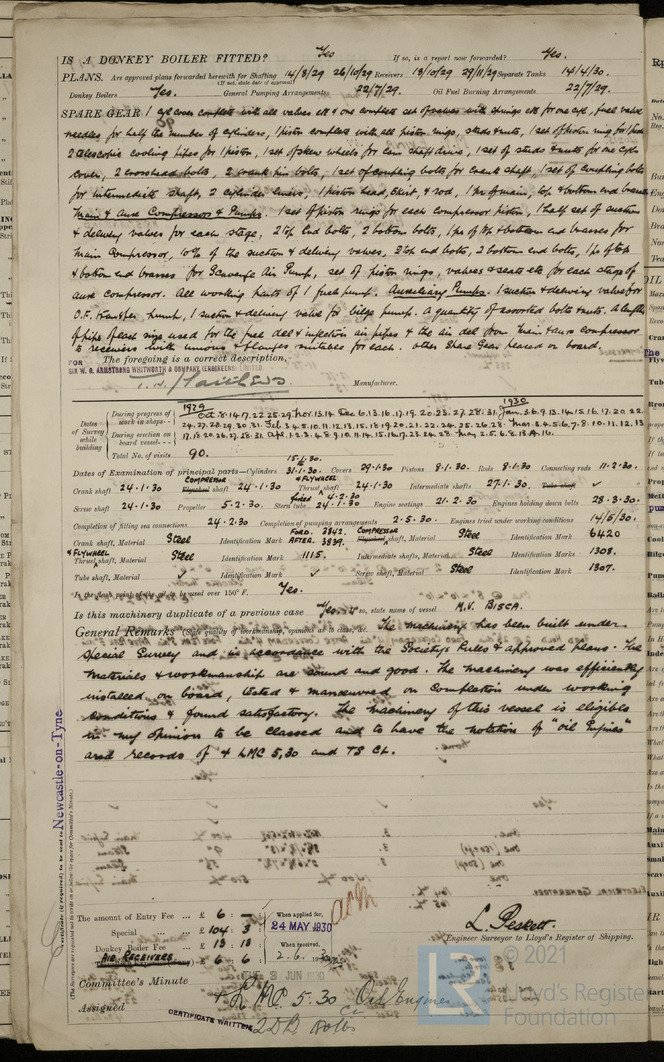 IS A DONKEY BOILER FITTED? Yes If so, is a report now forwarded? Yes.
PLANS. Are approved plans forwarded herewith for Shafting 14/8/29 26/10/29 Receivers 18/10/29 29/11/29 Separate Tanks 14/4/30.
(If not, state date of approval)
Donkey Boilers Yes. General Pumping Arrangements 22/7/29. Oil Fuel Burning Arrangements 22/7/29.
SPARE GEAR 1 cyl cover complete with all valves etc & one complete set of valves with springs etc for one cyl, fuel valve
needles for half the number of cylinders, 1 piston complete with all piston rings, studs & nuts, 1 set of piston rings for 1 piston
2 telescopic cooling pipes for 1 piston, 1 set of skew wheels for cam shaft drive, 1 set of studs & nuts for one cyl
cover, 2 crosshead bolts, 2 crank pin bolts, 1 set of coupling bolts for crank shaft, 1 set of coupling bolts
for intermediate shaft, 2 cylinder liners, 1 piston head, skirt, & rod, 1 pr of main, top & bottom end brasses
Main & Aux Compressors & Pumps. 1 set of piston rings for each compressor piston, 1 half set of suction
& delivery valves for each stage, 2 top end bolts, 2 bottom bolts, 1 pr of top & bottom end brasses for
main compressor, 10% of the suction & delivery valves, 2 top end bolts, 2 bottom end bolts, 1 pr of top
& bottom end brasses for Scavenge Air Pump, set of piston rings, valves & seats etc for each stage of
aux compressor. All working parts of 1 fuel pump. Auxiliary Pumps. 1 suction & delivery valve for
O.F. transfer pump, 1 suction & delivery valve for bilge pump. A quantity of assorted bolts & nuts. A length
of pipe of each size used for the fuel del & injection air pipes & the air del from main & aux compressor
to receivers with unions & flanges suitable for each. Other Spare Gear placed on board.
The foregoing is a correct description,
FOR SIR W. G. ARMSTRONG WHITWORTH & COMPANY (ENGINEERS) LIMITED.
Manufacturer.
1929 1930
Dates of Survey while building
During progress of work in shops
During erection on board vessel
Total No. of visits 90.
15.1.30
Dates of Examination of principal parts—Cylinders 31.1.30 Covers 29.1.30 Pistons 8.1.30 Rods 8.1.30 Connecting rods 11.2.30
Crank shaft 24.1.30 COMPRESSOR Flywheel shaft 24.1.30 & FLYWHEEL Thrust shaft 24.1.30 Intermediate shafts 27.1.30. Tube shaft ✓
Screw shaft 24.1.30 Propeller 5.2.30 Stern tube fixed 4.2.30 24.1.30 Engine seatings 21.2.30 Engines holding down bolts 28.3.30
Completion of fitting sea connections 24.2.30 Completion of pumping arrangements 2.5.30. Engines tried under working conditions 14/5/30.
Crank shaft, Material Steel Identification Mark FORD. 3842. AFTER. 3839. COMPRESSOR Flywheel shaft, Material Steel Identification Mark 6420
& FLYWHEEL Thrust shaft, Material Steel Identification Mark 1115. Intermediate shafts, Material Steel Identification Marks 1308.
Tube shaft, Material ✓ Identification Mark ✓ Screw shaft, Material Steel Identification Mark 1307.
Is the flash point of the oil to be used over 150° F. Yes.
Is this machinery duplicate of a previous case Yes. If so, state name of vessel M.V. BISCA.
General Remarks (State quality of workmanship, opinions as to class, &c. The machinery has been built under
special Survey and in accordance with the Society's Rules & approved plans. The
materials & workmanship are sound and good. The machinery was efficiently
installed on board, tested & manœuvred on completion under working
conditions & found satisfactory. The machinery of this vessel is eligible
in my opinion to be classed and to have the notation of "oil Engines"
and records of + LMC 5,30 and TS CL.
Newcastle-on-Tyne
Certificate (if required) to be sent to
(The Surveyors are requested not to write on or below the space for Committee's Minute.)
The amount of Entry Fee ... £ 6 : — When applied for,
Special ... £ 104 : 3 24 MAY 1930
Donkey Boiler Fee ... £ 13 : 13 When received,
AIR RECEIVERS £ 6 : 6 2.6.30
L. Peskett.
Engineer Surveyor to Lloyd's Register of Shipping.
Committee's Minute
Assigned + LMC 5.30 Oil Engines CL
CERTIFICATE WRITTEN
© 2021
Lloyd's Register
Foundation